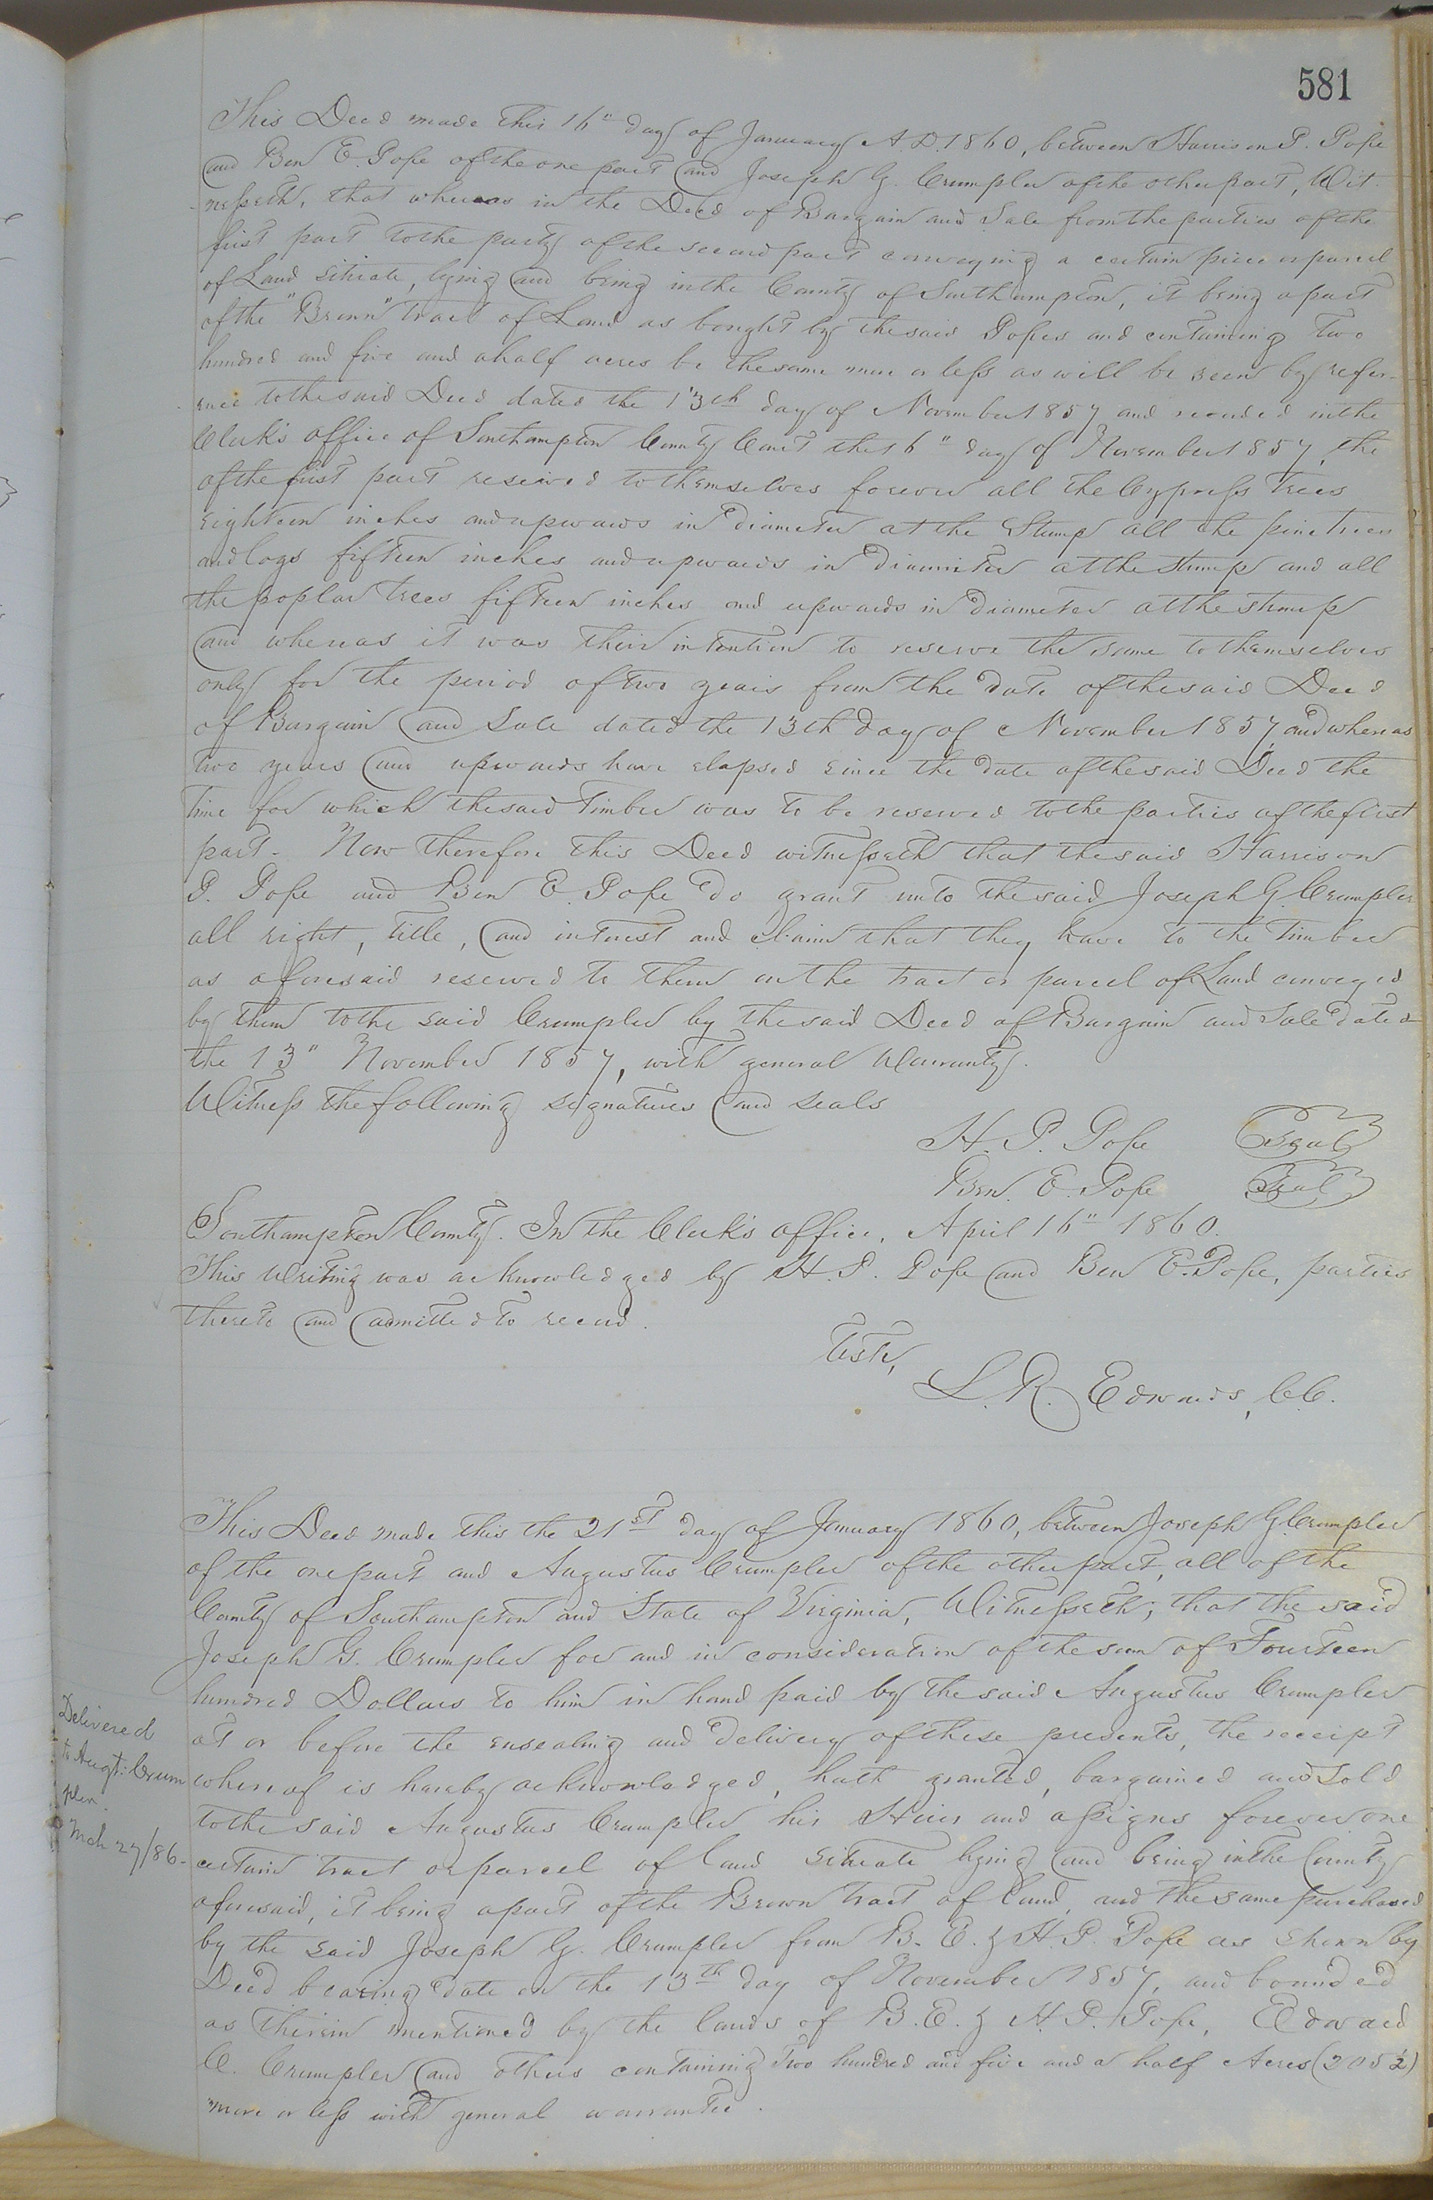 581
This Deed made this 16" day of January A.D. 1860, between Harrison P. Pope
and Ben E. Pope of the one part and Joseph G. Crumpler of the other part, Wit-
nesseth, that whereas in the Deed of Bargain and Sale from the parties of the
first part to the party of the second part conveying a certain piece or parcel
of Land situate, lying and being in the County of Southampton, it being a part
of the "Brown" tract of Land as bought by the said Popes and containing two
hundred and five and a half acres be the same more or less as will be seen by refer-
ence to the said Deed dated the 13th day of November 1857 and recorded in the
Clerk's office of Southampton County Court the 16" day of November 1857, the
of the first part reserved to themselves forever all the Cypress trees
eighteen inches and upwards in diameter at the Stump all the pine trees
and logs fifteen inches and upwards in diameter at the stump and all
the poplar trees fifteen inches and upwards in diameter at the stump
and whereas it was their intention to reserve the same to themselves
only for the period of two years from the date of the said Deed
of Bargain and Sale dated the 13th day of November 1857, and whereas
two years and upwards have elapsed since the date of the said Deed the
time for which the said Timber was to be reserved to the parties of the first
part. Now therefore this Deed witnesseth that the said Harrison
P. Pope and Ben E. Pope do grant unto the said Joseph G. Crumpler
all right, title, and interest and claim that they have to the timber
as aforesaid reserved to them on the tract or parcel of Land conveyed
by them to the said Crumpler by the said Deed of Bargain and Sale dated
the 13" November 1857, with general Warranty.
Witness the following signatures and seals
H. P. Pope Seal
Ben. E. Pope Seal
Southampton County. In the Clerk's office, April 16" 1860.
This Writing was acknowledged by H. P. Pope and Ben E. Pope, parties
thereto and admitted to record.
Teste,
L. R. Edwards, C.C.
This Deed made this the 21st day of January 1860, between Joseph G. Crumpler
of the one part and Augustus Crumpler of the other part, all of the
County of Southampton and State of Virginia, Witnesseth; that the said
Joseph G. Crumpler for and in consideration of the sum of Fourteen
hundred Dollars to him in hand paid by the said Augustus Crumpler
at or before the ensealing and delivery of these presents, the receipt
whereof is hereby acknowledged, hath granted, bargained and Sold
to the said Augustus Crumpler his Heirs and assigns forever one
certain tract or parcel of land situate lying and being in the County
aforesaid, it being a part of the Brown tract of land, and the same purchased
by the said Joseph G. Crumpler from B. E. & H. P. Pope as shown by
Deed bearing date on the 13th day of November 1857, and bounded
as therein mentioned by the lands of B. E. & H. P. Pope, Edward
C. Crumpler and others containing Two hundred and five and a half Acres (205½)
more or less with general warrantee.
Delivered
to Augt. Crum
pler.
Mch 27/86-